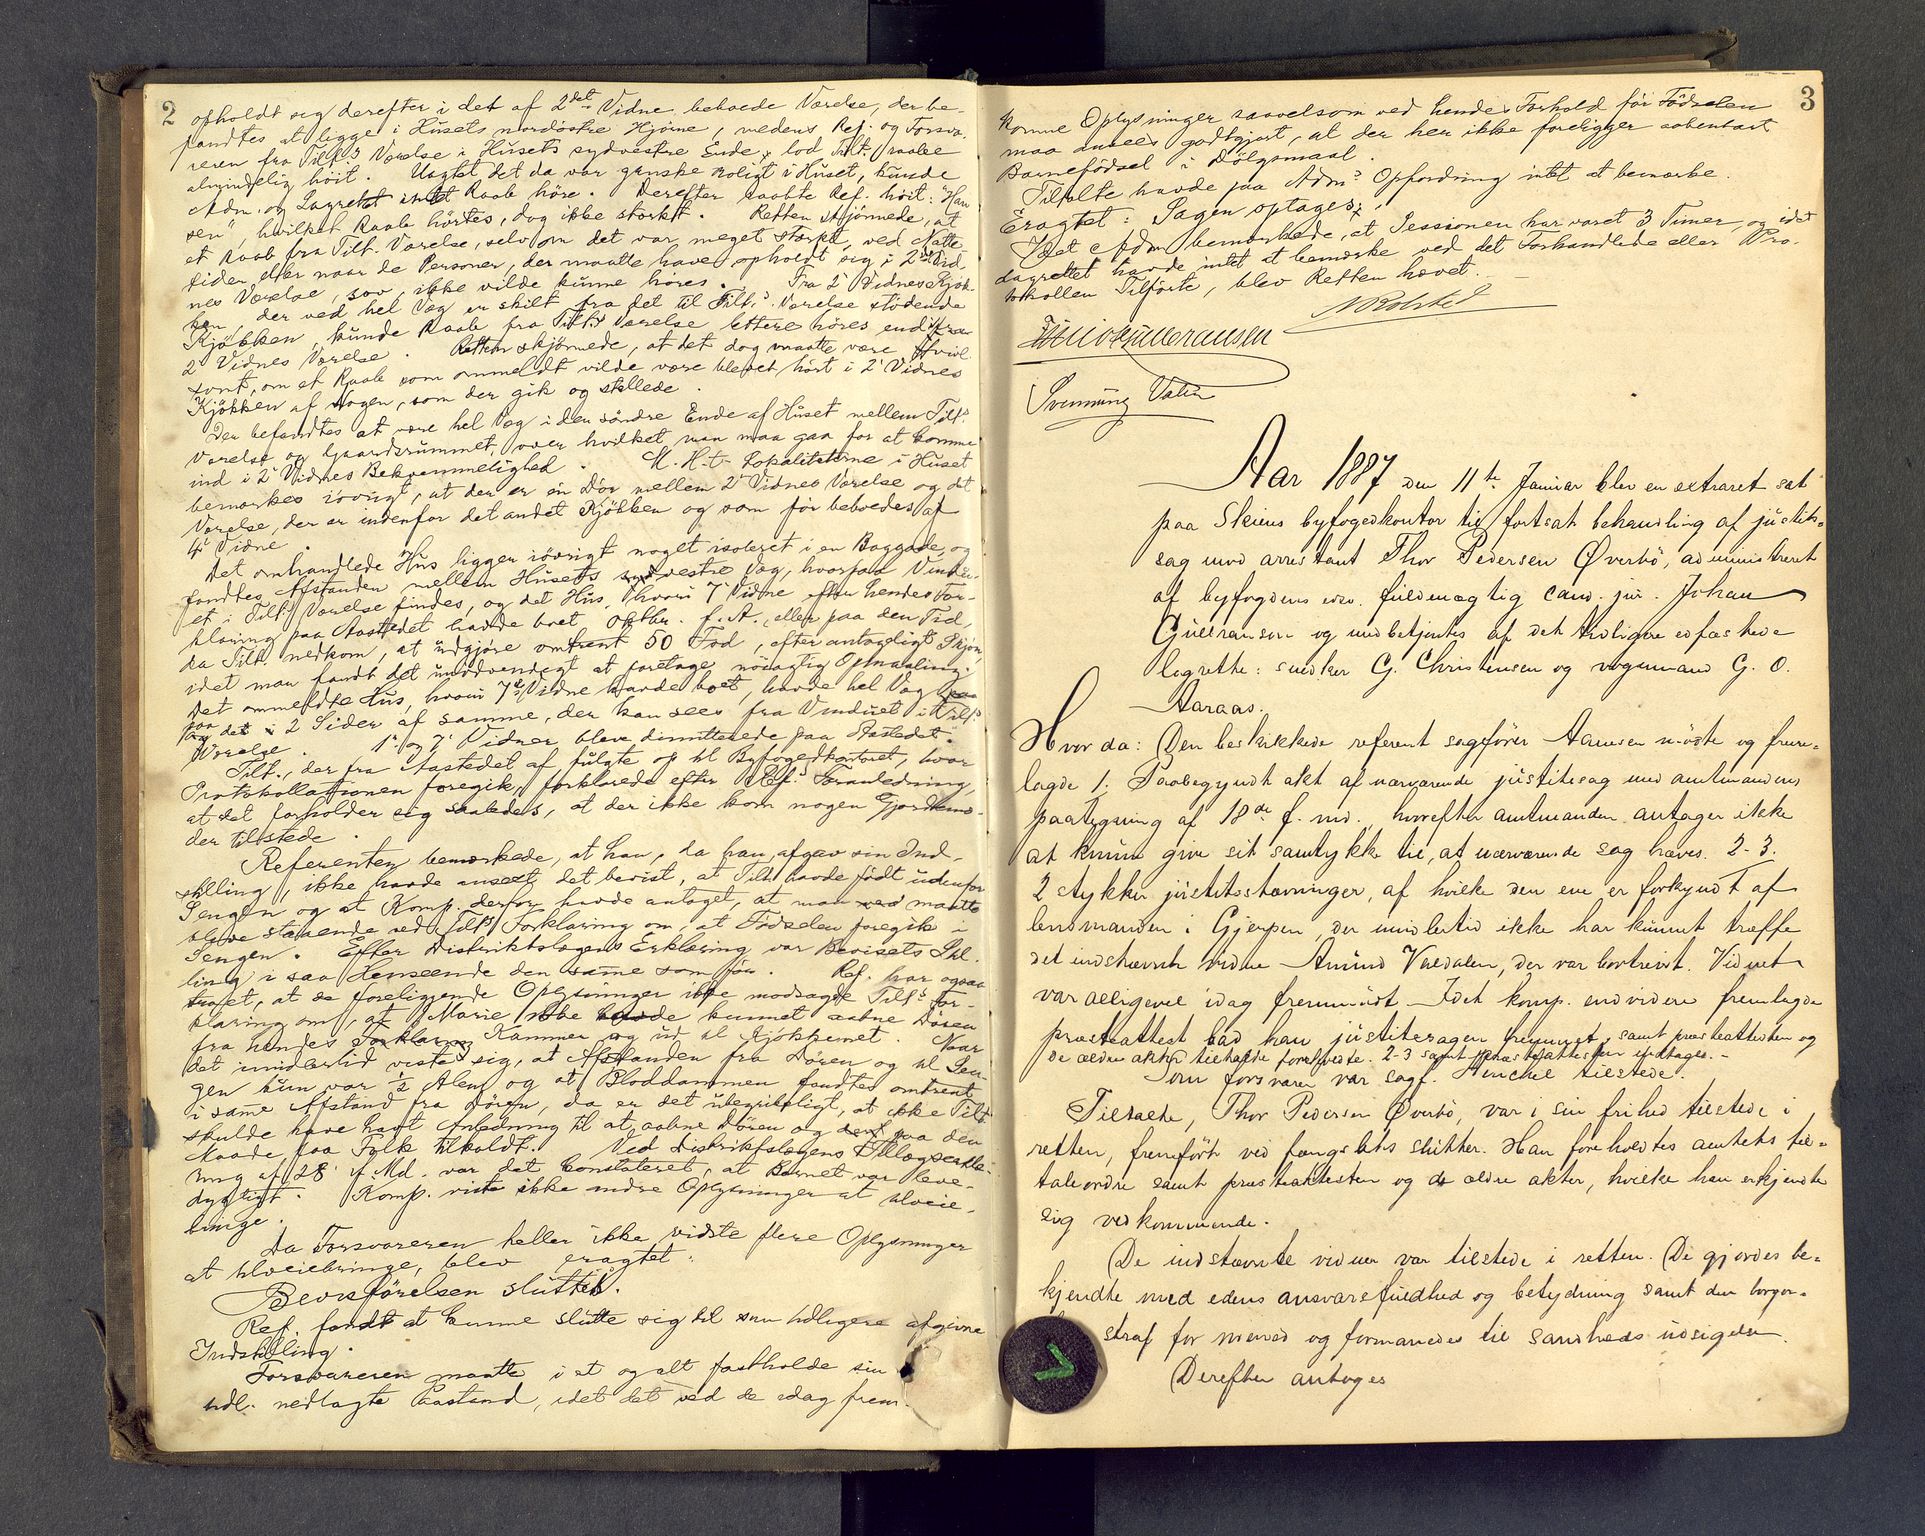 2
opholdt sig derefter i det af 2det Vidne beboede Værelse, der be-
fandtes at ligge i Husets nordöstre Hjörne, medens Ref. og Forsva-
reren fra Tilt.s Værelse i Husets sydvestre Ende lod Tilt. raabe
almindelig höit. Uagtet det da var ganske roligt i Huset, kunde
Adm. og Lagrettet intet Raab höre. Derefter raabte Ref. höit: "Han
sen", hvilket Raab hörtes, dog ikke stærkt. Retten skjönnede, at
et Raab fra Tilt.s Værelse, selv om det var meget stærkt, ved Natte-
tider, eller naar de Personer, der maatte have opholdt sig i 2det Vid
nes Værelse, sov, ikke vilde kunne höres. Fra 2' Vidnes Kjök-
ken, der ved hel Væg er skilt fra det til Tilt.s Værelse stödende
Kjökken, kunde Raab fra Tilt.s Værelse lettere höres end fra
2' Vidnes Værelse. Retten skjönnede, at det dog maatte være tvivl
somt, om et Raab som ommeldt vilde være blevet hört i 2' Vidnes
Kjökken af nogen, som der gik og stellede.
Der befandtes at være hel Væg i den söndre Ende af Huset mellem Tilt.s
Værelse og Gaardsrummet, over hvilket man maa gaa for at komme
ind i 2' Vidnes Bekvemmelighed. M. H. t. Lokaliteterne i Huset
bemærkes iövrigt, at der er en Dör mellem 2' Vidnes Værelse og det
Værelse, der er indenfor det andet Kjökken og som för beboedes af
4' Vidne.
Det omhandlede Hus ligger iövrigt noget isoleret i en Baggade, og
fandtes Afstanden mellem Husets sydvestre Væg, hvorpaa Vindu-
et i Tilt.s Værelse findes, og det Hus, hvori 7' Vidne efter hendes For-
klaring paa Aastedet havde boet Oktbr. f. A., eller paa den Tid,
da Tilt. nedkom, at udgjöre omtrent 50 Fod, efter antageligt Skjön,
idet man fandt det unödvendigt at foretage nöiagtig Opmaaling.
Det ommeldte Hus, hvori 7de Vidne havde boet, havde hel Væg paa
paa de 2 Sider af samme, der kan sees fra Vinduet i Tilt.s
Værelse. 1' og 7' Vidner bleve dimitterede paa Aastedet.
Tilt., der fra Aastedet af fulgte op til Byfogedkontoret, hvor
Protokollationen foregik, forklarede efter Ref.s Foranledning,
at det forholder sig saaledes, at der ikke kom nogen Gjordemo-
der tilstede.
Referenten bemærkede, at han, da han afgav sin Ind-
stilling, ikke havde anseet det bevist, at Tilt. havde födt udenfor
Sengen og at Komp. derfor havde antaget, at man maatte
blive staaende ved Tilt.s Forklaring om, at Födselen foregik i
Sengen. Efter Distriktslægens Erklæring var Bevisets Stil-
ling i saa Henseende den samme som för. Ref. har ogsaa
troet, at de foreliggende Oplysninger ikke modsagde Tilt.s For-
klaring om, at Marie ikke havde kunnet aabne Dören
fra hendes Kammer og ud til Kjökkenet. Naar
det imidlertid viste sig, at Afstanden fra Dören og til Sen-
gen kun var 1/2 Alen og at Bloddammen fandtes omtrent
i samme Afstand fra Dören, da er det ubegribeligt, at ikke Tilt.
skulde have havt Anledning til at aabne Dören og paa den
Maade faa Folk tilkaldt. Ved Distriktslægens Tillægserklæ-
ring af 28' f. Md. var det konstateret, at Barnet var leve-
dygtigt. Komp. viste ikke andre Oplysninger at tilveie-
bringe.
Da Forsvareren heller ikke vidste flere Oplysninger
at tilveiebringe, blev eragtet:
Bevisförelsen sluttet.
Ref. fandt at kunne slutte sig til sin tidligere afgivne
Indstilling.
Forsvareren maatte i et og alt fastholde sin
tidl. nedlagte Paastand, idet det ved de idag frem-
3
komne Oplysninger saavelsom ved hendes Forhold för Födselen
maa ansees godtgjort, at der her ikke foreligger aabenbart
Barnefödsel i Dölgsmaal.
Tiltalte havde paa Adm.s Opfordring intet at bemærke.
Eragtet: Sagen optages.
Idet Adm. bemærkede, at Sessionen har varet 3 Timer og idet
Lagrettet havde intet at bemærke ved det Forhandlede eller Pro-
tokollen Tilförte, blev Retten hævet.
Svennung Valen
Aar 1887 den 11te Januar blev en extraret sat
paa Skiens byfogedkontor til fortsat behandling af justits-
sag mod arrestant Thor Pedersen Øverbö, administreret
af byfogdens edsv. fuldmægtig cand. jur. Johan
Gullransson og medbetjentes af det tidligere edfæstede
lagrette: snedker G. Christensen og vognmand G. O.
Aaraas.
Hvor da: Den beskikkede referent sagförer Aamesen mödte og frem-
lagde 1. Paabegyndt akt af nærværende justitssag med amtmandens
paategning af 18de f. md., hvorefter amtmanden antager ikke
at kunne give sit samtykke til, at nærværende sag hæves. 2-3.
2 stykker justitsstævninger, af hvilke den ene er forkyndt af
lensmanden i Gjerpen, der imidlertid ikke har kunnet træffe
det indstævnte vidne Amund Valdalen, der var bortreist. Vidnet
var alligevel idag fremmödt. Idet komp. endvidere fremlagde
præsteattest bad han justitssagen fremmet, samt præsteattesten og
de ældre akter tiltalte foreholdte. 2-3 samt præsteattesten indtages.
Som forsvarer var sagf. Henchel tilstede.
Tiltalte, Thor Pedersen Øverbö, var i sin frihed tilstede i
retten, fremfört ved fængslets slutter. Han foreholdtes amtets til-
taleordre samt præsteattesten og de ældre akter, hvilke han erkjendte
sig vedkommende.
De indstævnte vidner var tilstede i retten. De gjordes be-
kjendte med edens ansvarsfuldhed og betydning samt den borger-
straf for mened og formanedes til sandheds udsigelse.
Derefter antoges